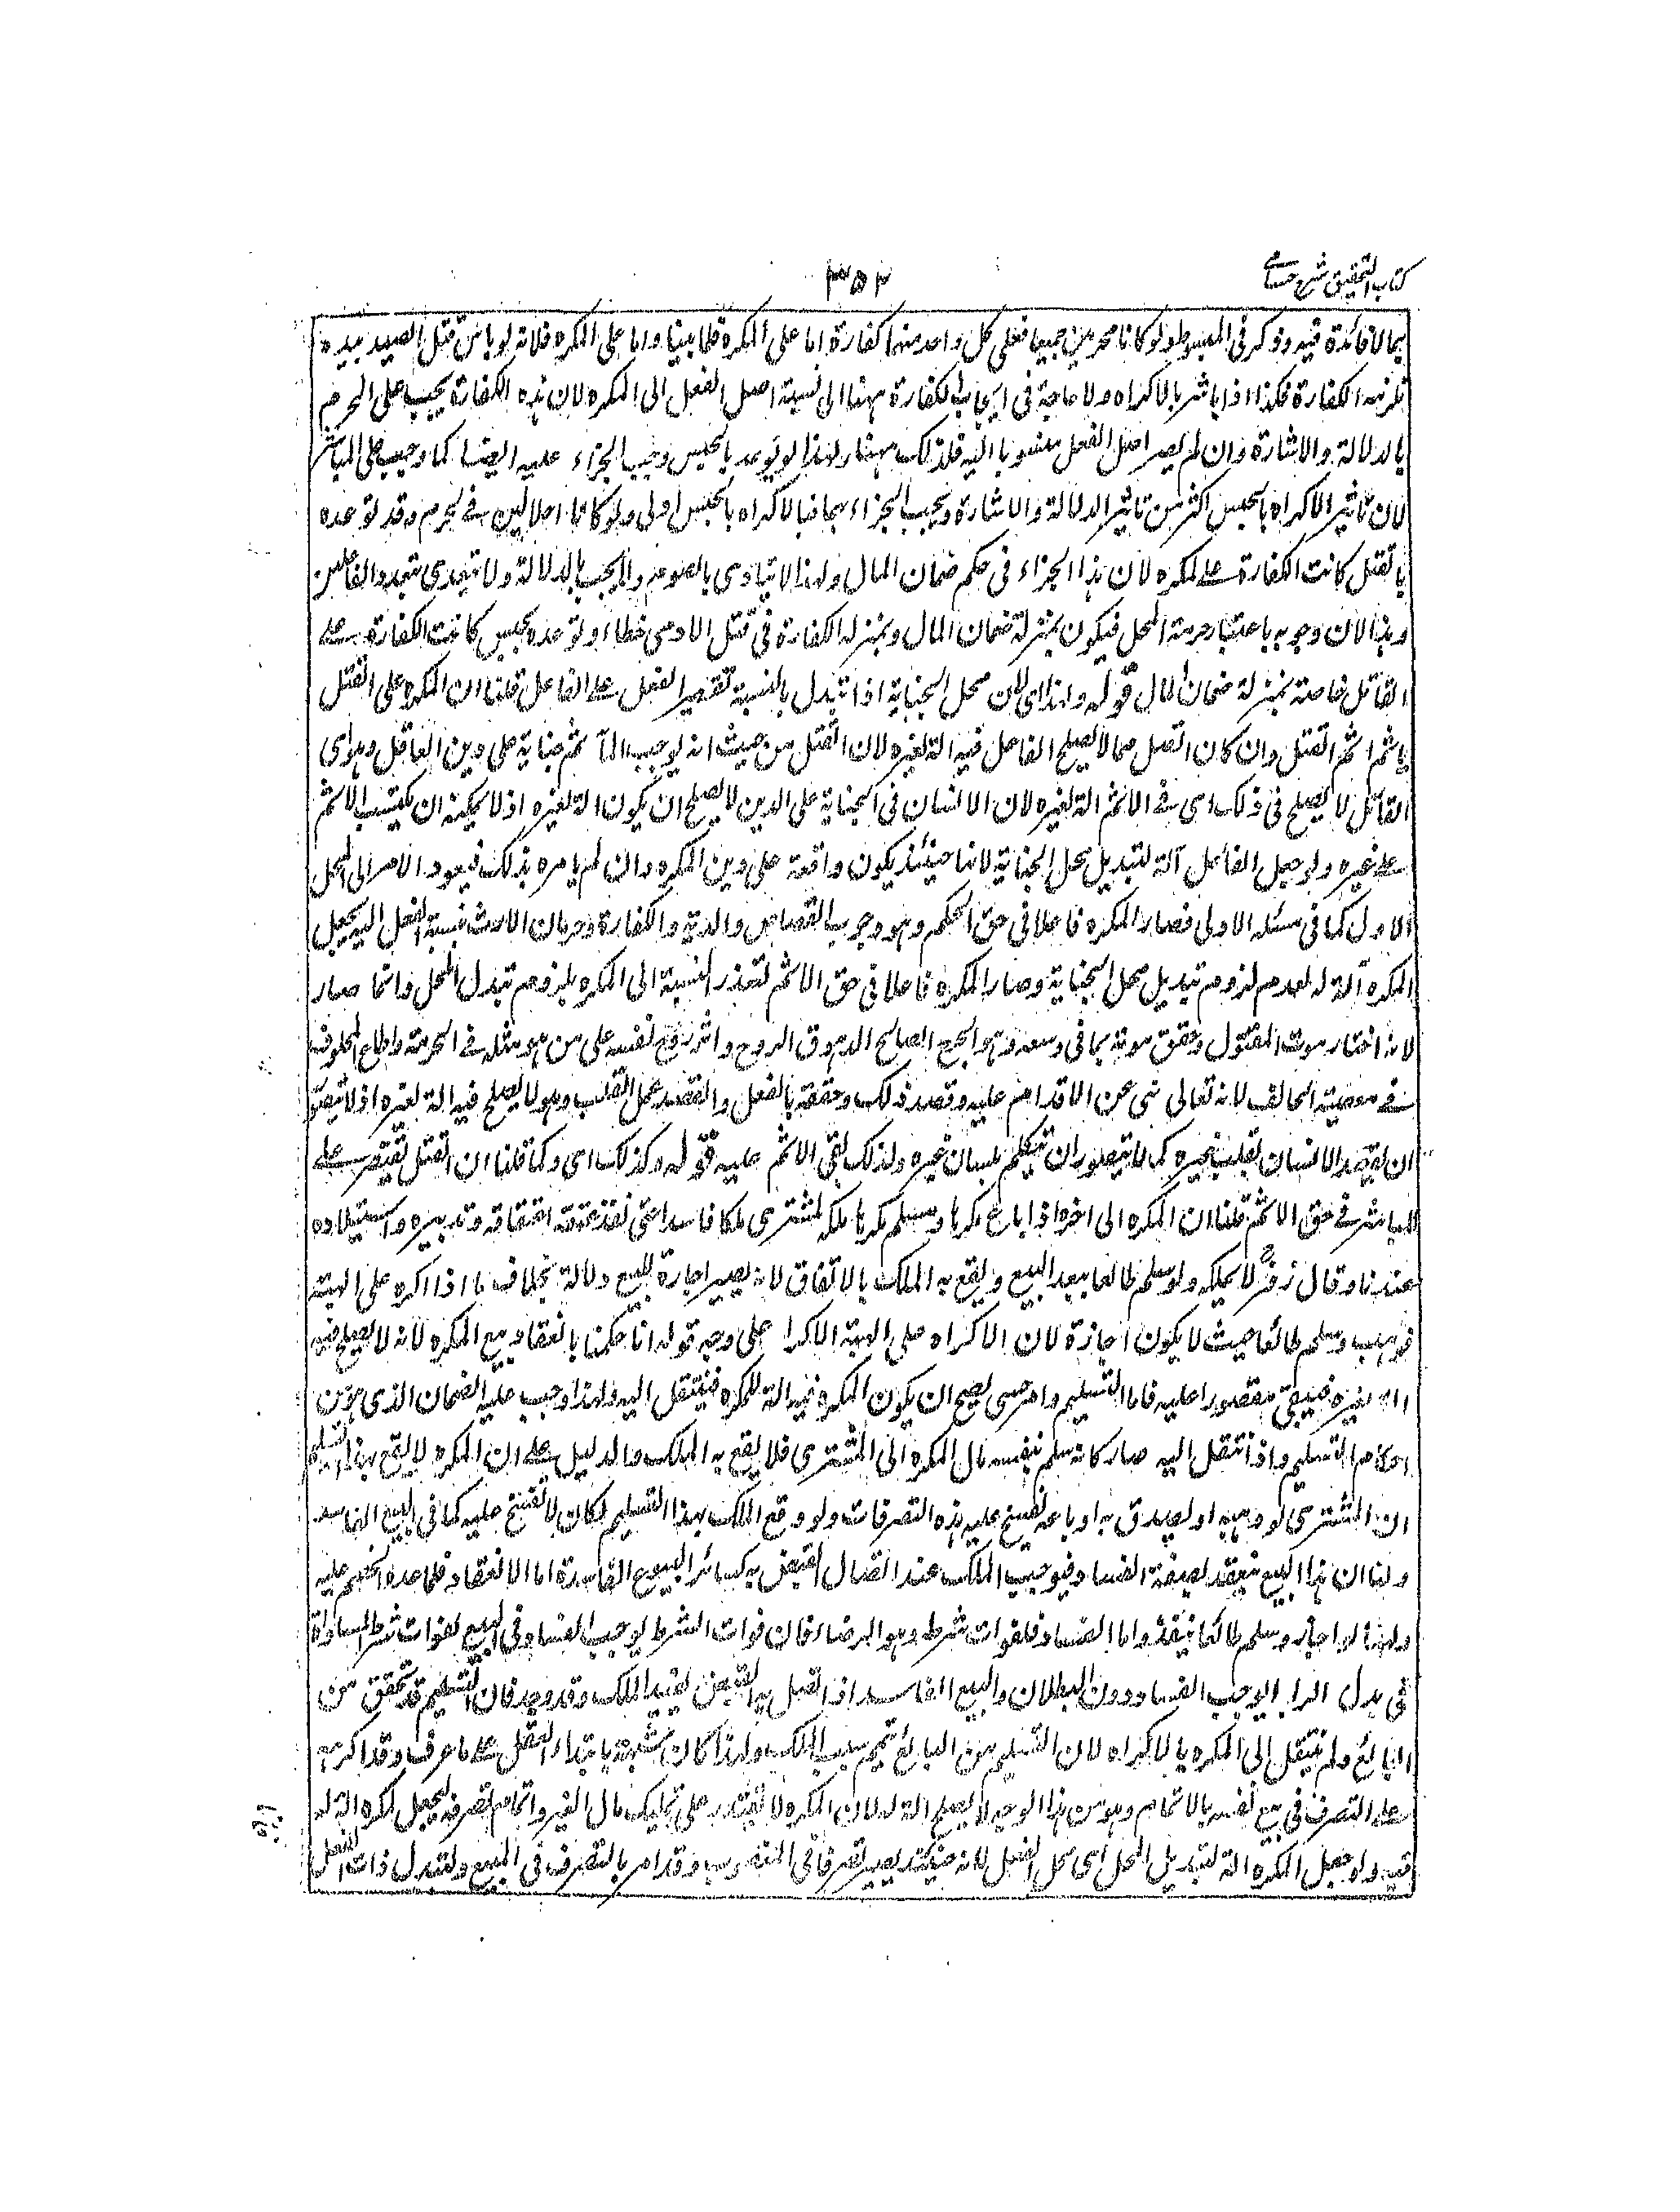 كتاب التحقيق شرح حسامى
٣٥٢
بما لا فائدة فيه وذكر فى المبسوط ولو كانا محرمين جميعا فعلى كل واحد منهما كفارة اما على المكره فلما بينا واما على المكره فلانه لو باشر قتل الصيد بيده
تلزمه الكفارة فكذا اذا باشر بالاكراه ولا حاجة فى ايجاب الكفارة ههنا الى نسبة اصل الفعل الى المكره لان هذه الكفارة يجب على المحرم
بالدلالة والاشارة وان لم يصر اصل الفعل منسوبا اليه فكذلك ههنا ولهذا لو توعد بالحبس وجب الجزاء عليه ايضا كما وجب على المباشر
لان تاثير الاكراه بالحبس اكثر من تاثير الدلالة والاشارة ويجب الجزاء بهما فبالاكراه بالحبس اولى ولو كانا حلالين فے الحرم وقد توعده
بالقتل كانت الكفارة على المكره لان هذا الجزاء فى حكم ضمان المال ولهذا لا يتادى بالصوم ولا يجب بالدلالة ولا يتعدى بتعدد الفاعلين
وهذا لان وجوبه باعتبار حرمة المحل فيكون بمنزلة ضمان المال وبمنزلة الكفارة فى قتل الادمى خطاء ولو توعده بحبس كانت الكفارة على
القاتل خاصة بمنزلة ضمان المال قوله ولهذا اى لان محل الجناية اذا تبدل بالنسبة تقتصر الفعل على الفاعل قلنا ان المكره على القتل
ياثم اثم القتل وان كان القتل مما لا يصلح الفاعل فيه الة لغيره لان القتل من حيث انه يوجب المآثم جناية على دين القاتل وهو اى
القاتل لا يصلح فى ذلك اى فے الاثم الة لغيره لان الانسان فى الجناية على الدين لا يصلح ان يكون الة لغيره اذ لا يمكنه ان يكتسب الاثم
على غيره ولو جعل الفاعل آلة لتبديل محل الجناية لانها حينئذ يكون واقعة على دين المكره وان لم يامره بذلك فيعود الامر الى المحل
الاول كما فى مسئلة الاولى فصار المكره فاعلا فى حق الحكم وهو وجوب القصاص والدية والكفارة وحرمان الارث فنسبة الفعل اليه بجعل
المكره آلة له لعدم لزوم تبديل محل الجناية وصار المكره فاعلا فى حق الاثم لتعذر النسبة الى المكره بلزوم تبدل المحل وانما صار
لانه اختار موت المقتول وحقق موته بما فى وسعه وهو الجرح الصالح لزهوق الروح واثر روح نفسه على من هو مثله فے الحرمة واطاع المخلوق
فے معصية الخالق لانه تعالى نهى عن الاقدام عليه وقصد ذلك وحققه بالفعل والقصد عمل القلب وهو لا يصلح فيه الة لغيره اذ لا يتصور
ان يقصد الانسان بقلب غيره كما لا يتصور ان يتكلم بلسان غيره ولذلك بقى الاثم عليه قوله وكذلك اى وكما قلنا ان القتل يقتصر على
المباشر فے حق الاثم قلنا ان المكره الى اخره اذا باع مكرها وسلم مكرها ملكه المشترى ملكا فاسدا حتى نفذ عتقه اعتاقه وتدبيره واستيلاده
عندنا وقال زفر لا يملكه ولو سلم طائعا بعد البيع ويقع به الملك بالاتفاق لانه يصير اجازة للبيع دلالة بخلاف ما اذا اكره على الهبة
فوهب وسلم طائعا حيث لا يكون اجازة لان الاكراه على الهبة الاكراه على وجه قوله انا حكمنا بانعقاد بيع المكره لانه لا يصلح فيه
الة لغيره فيبقى مقصورا عليه فاما التسليم وامر حسى يصح ان يكون المكره فيه الة للمكره فينتقل اليه ولهذا وجب عليه الضمان الذى هو من
احكام التسليم واذا انتقل اليه صار كانه سلم بنفسه مال المكره الى المشترى فلا يقع به الملك والدليل على ان المكره لا يقع بهذا التسليم
ان المشترى لو وهبه او تصدق به او باعه تفسخ عليه هذه التصرفات ولو وقع الملك بهذا التسليم لكان لا تفسخ عليه كما فى البيع الفاسد
ولنا ان هذا البيع ينعقد لصفة الفساد فيوجب الملك عند اتصال القبض به كسائر البيوع الفاسدة اما الانعقاد فلما عده الخصم عليه
ولهذا لو اجاز وسلم طائعا ينفذ واما الفساد فلفوات شرطه وهو الرضاء فان فوات الشرط يوجب الفساد فى البيع لفوات شرط المساواة
فى بدل الربا يوجب الفساد دون البطلان والبيع الفاسد اذا اتصل به القبض يفيد الملك وقد وجد فان التسليم قد تحقق من
البائع ولم ينتقل الى المكره بالاكراه لان التسليم من البائع تتميم سبب الملك ولهذا كان شبهة بابتداء العقل على ما عرف وقد اكرهه
على التصرف فى بيع نفسه بالاتمام وهو من هذا الوجه لا يصلح الة له لان المكره لا يقتدر على تمليك مال الغير واتمام تصرفه ليجعل المكره الة له
فيه ولو جعل المكره الة لتبديل المحل اى محل الفعل لانه حينئذ يصير تصرفا فى المغصوب وقد امر بالتصرف فى المبيع ولتبدل ذات الفعل